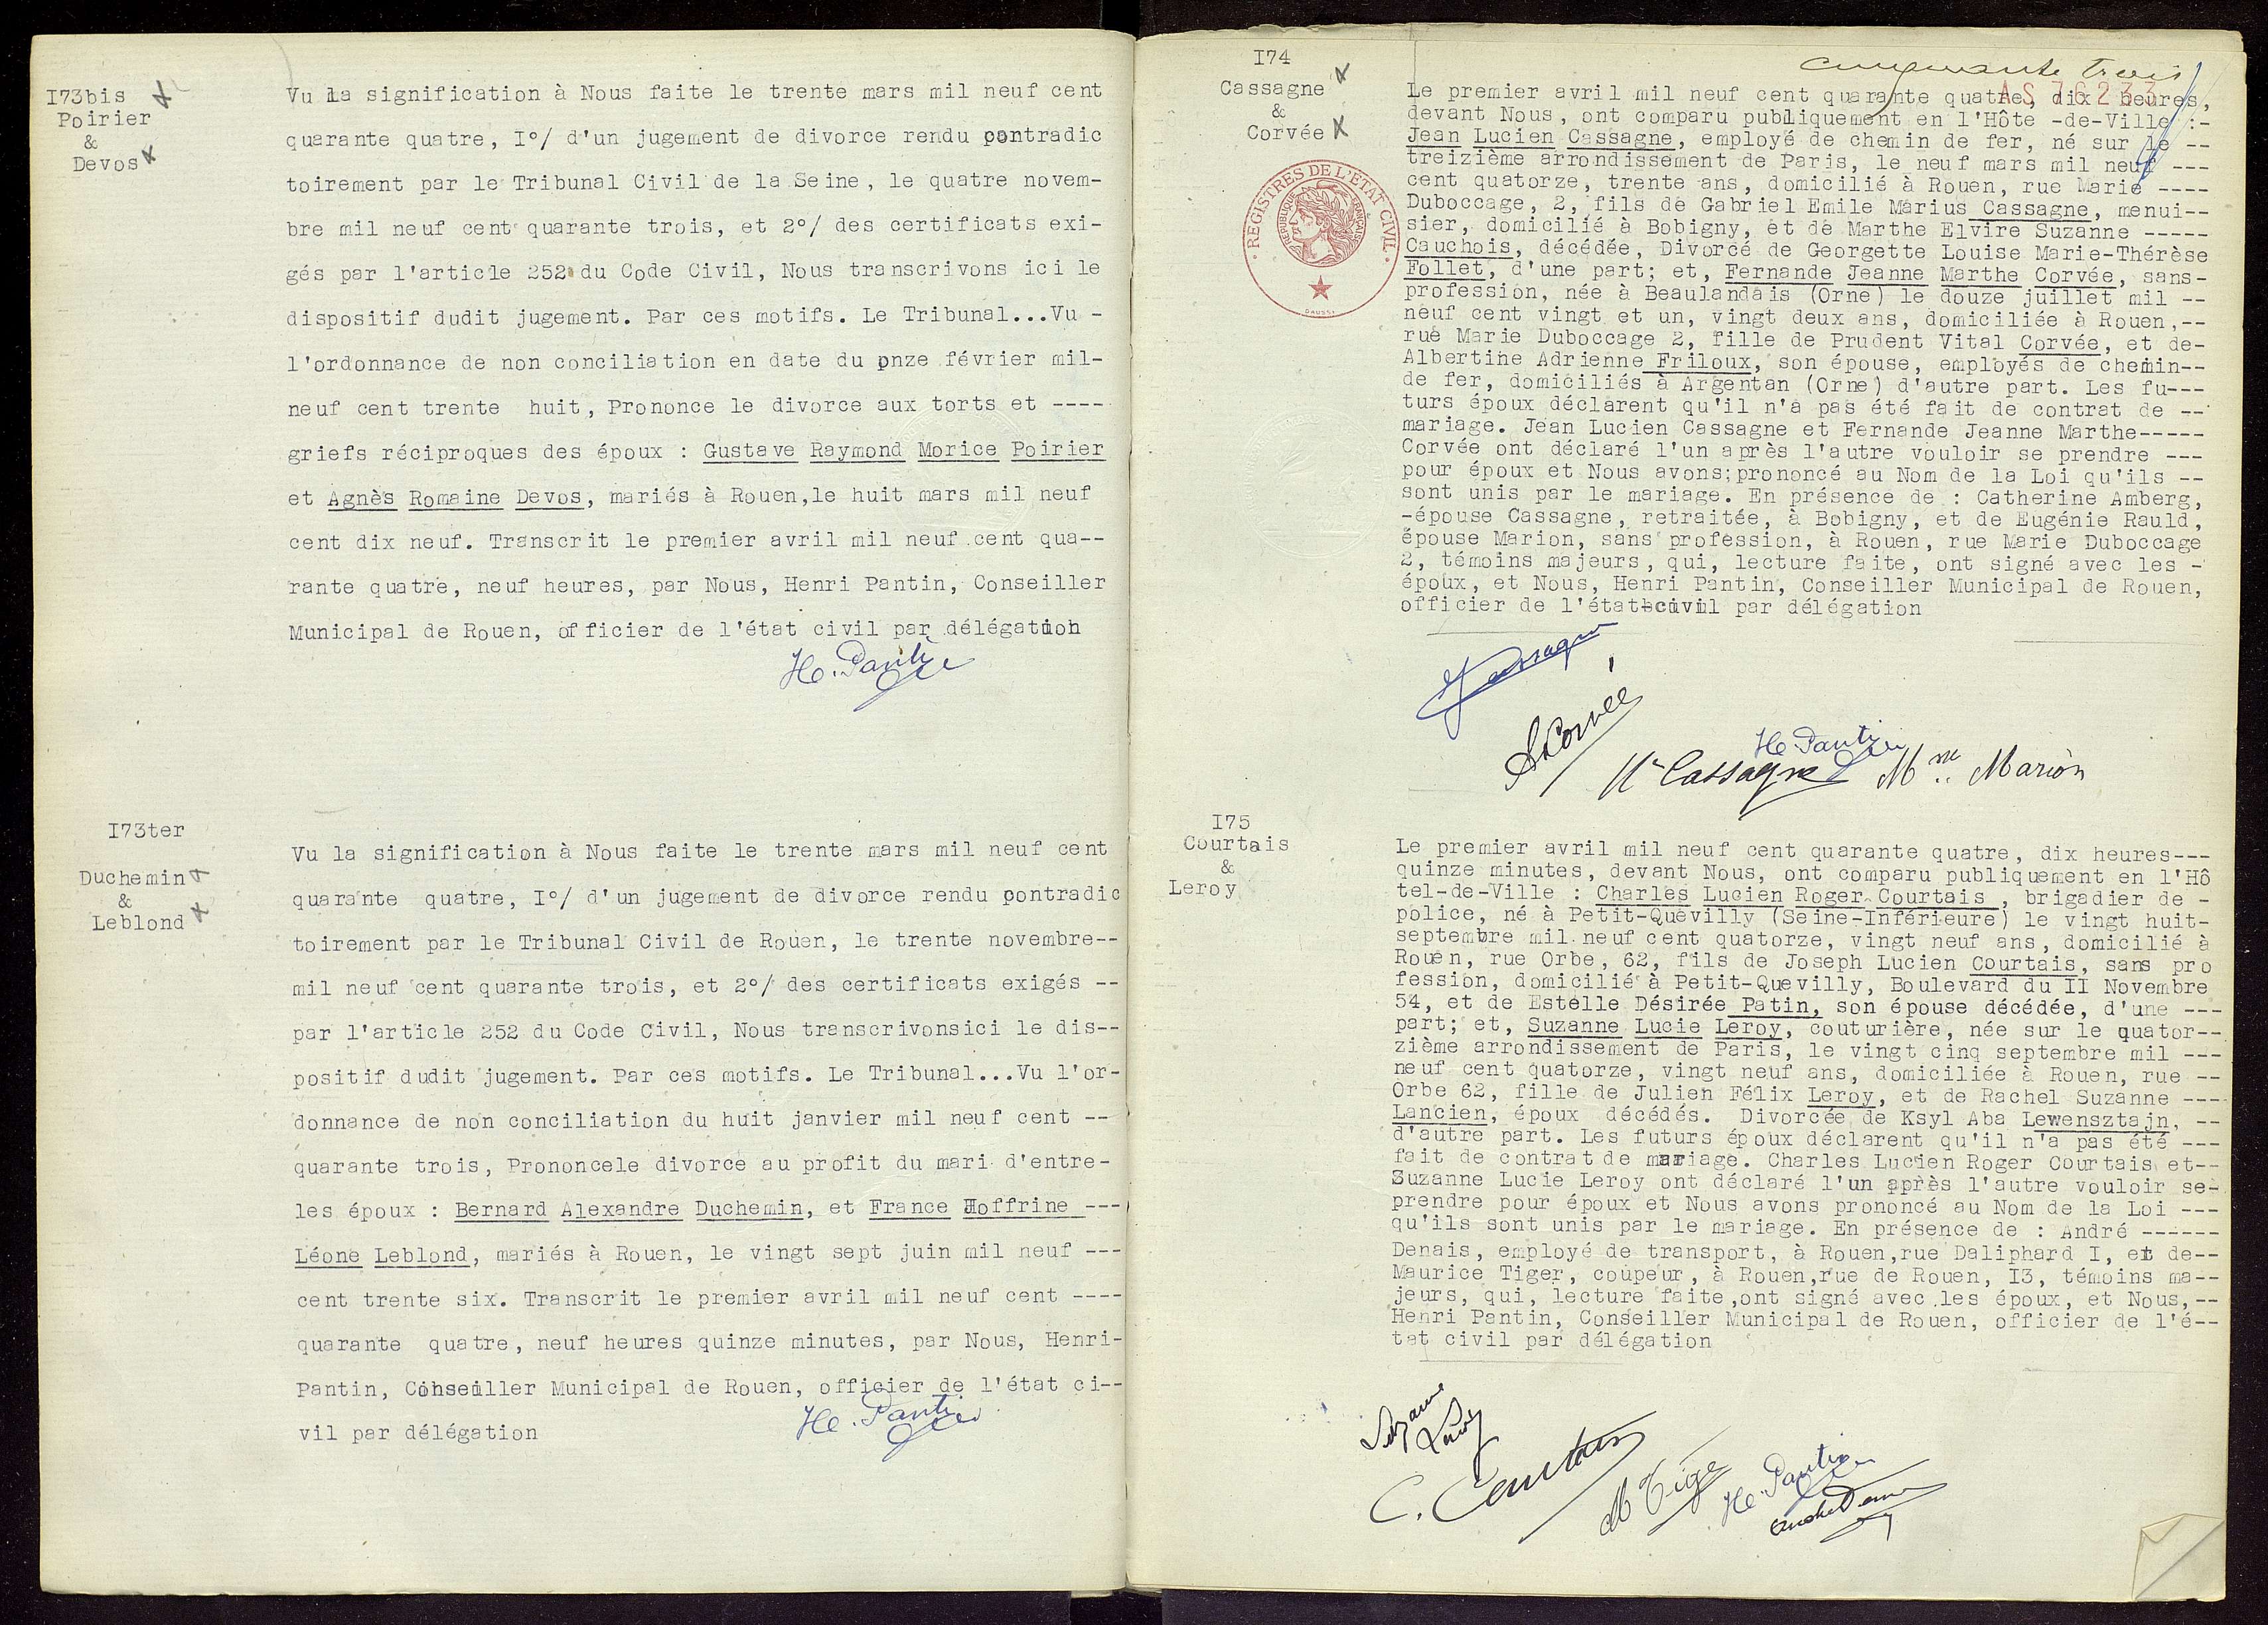 I73bis
Poirier
&
Devos
Vu la signification à Nous faite le trente mars mil neuf cent
quarante quatre, I°/ d'un jugement de divorce rendu contradic
toirement par le Tribunal Civil de la Seine, le quatre novem-
bre mil neuf cent quarante trois, et 2°/ des certificats exi-
gés par l'article 252 du Code Civil, Nous transcrivons ici le
dispositif dudit jugement. Par ces motifs. Le Tribunal...Vu -
l'ordonnance de non conciliation en date du onze février mil-
neuf cent trente huit, Prononce le divorce aux torts et ----
griefs réciproques des époux : Gustave Raymond Morice Poirier
et Agnès Romaine Devos, mariés à Rouen,le huit mars mil neuf
cent dix neuf. Transcrit le premier avril mil neuf cent qua--
rante quatre, neuf heures, par Nous, Henri Pantin, Conseiller
Municipal de Rouen, officier de l'état civil par délégation
He. Pantin
I73ter
Duchemin
&
Leblond
Vu la signification à Nous faite le trente mars mil neuf cent
quarante quatre, I°/ d'un jugement de divorce rendu contradic
toirement par le Tribunal Civil de Rouen, le trente novembre--
mil neuf cent quarante trois, et 2°/ des certificats exigés --
par l'article 252 du Code Civil, Nous transcrivonsici le dis--
positif dudit jugement. Par ces motifs. Le Tribunal...Vu l'or-
donnance de non conciliation du huit janvier mil neuf cent --
quarante trois, Prononcele divorce au profit du mari d'entre-
les époux : Bernard Alexandre Duchemin, et France Hoffrine ---
Léone Leblond, mariés à Rouen, le vingt sept juin mil neuf ---
cent trente six. Transcrit le premier avril mil neuf cent ----
quarante quatre, neuf heures quinze minutes, par Nous, Henri-
Pantin, Conseiller Municipal de Rouen, officier de l'état ci--
vil par délégation
He. Pantin
cinquante trois
AS 76233
I74
Cassagne
&
Corvée
REGISTRES DE L'ÉTAT CIVIL
RÉPUBLIQUE FRANÇAISE
DAUSSY
Le premier avril mil neuf cent quarante quatre, dix heures,
devant Nous, ont comparu publiquement en l'Hôte -de-Ville :-
Jean Lucien Cassagne, employé de chemin de fer, né sur le --
treizième arrondissement de Paris, le neuf mars mil neuf ---
cent quatorze, trente ans, domicilié à Rouen, rue Marie ----
Duboccage, 2, fils de Gabriel Emile Marius Cassagne, menui--
sier, domicilié à Bobigny, et de Marthe Elvire Suzanne -----
Cauchois, décédée, Divorcé de Georgette Louise Marie-Thérèse
Follet, d'une part; et, Fernande Jeanne Marthe Corvée, sans-
profession, née à Beaulandais (Orne) le douze juillet mil --
neuf cent vingt et un, vingt deux ans, domiciliée à Rouen,--
rue Marie Duboccage 2, fille de Prudent Vital Corvée, et de-
Albertine Adrienne Friloux, son épouse, employés de chemin--
de fer, domiciliés à Argentan (Orne) d'autre part. Les fu---
turs époux déclarent qu'il n'a pas été fait de contrat de --
mariage. Jean Lucien Cassagne et Fernande Jeanne Marthe-----
Corvée ont déclaré l'un après l'autre vouloir se prendre ---
pour époux et Nous avons;prononcé au Nom de la Loi qu'ils --
sont unis par le mariage. En présence de : Catherine Amberg,
-épouse Cassagne, retraitée, à Bobigny, et de Eugénie Rauld,
épouse Marion, sans profession, à Rouen, rue Marie Duboccage
2, témoins majeurs, qui, lecture faite, ont signé avec les -
époux, et Nous, Henri Pantin, Conseiller Municipal de Rouen,
officier de l'état-civil par délégation
Cassagne
Corvée
He. Pantin
Cassagne
Mme Marion
I75
Courtais
&
Leroy
Le premier avril mil neuf cent quarante quatre, dix heures---
quinze minutes, devant Nous, ont comparu publiquement en l'Hô
tel-de-Ville : Charles Lucien Roger Courtais , brigadier de -
police, né à Petit-Quevilly (Seine-Inférieure) le vingt huit-
septembre mil neuf cent quatorze, vingt neuf ans, domicilié à
Rouen, rue Orbe, 62, fils de Joseph Lucien Courtais, sans pro
fession, domicilié à Petit-Quevilly, Boulevard du II Novembre
54, et de Estelle Désirée Patin, son épouse décédée, d'une ---
part; et, Suzanne Lucie Leroy, couturière, née sur le quator--
zième arrondissement de Paris, le vingt cinq septembre mil ---
neuf cent quatorze, vingt neuf ans, domiciliée à Rouen, rue --
Orbe 62, fille de Julien Félix Leroy, et de Rachel Suzanne ----
Lancien, époux décédés. Divorcée de Ksyl Aba Lewensztajn, --
d'autre part. Les futurs époux déclarent qu'il n'a pas été ---
fait de contrat de mariage. Charles Lucien Roger Courtais et--
Suzanne Lucie Leroy ont déclaré l'un après l'autre vouloir se-
prendre pour époux et Nous avons prononcé au Nom de la Loi ---
qu'ils sont unis par le mariage. En présence de : André ------
Denais, employé de transport, à Rouen,rue Daliphard I, et de--
Maurice Tiger, coupeur, à Rouen,rue de Rouen, I3, témoins ma--
jeurs, qui, lecture faite,ont signé avec les époux, et Nous,--
Henri Pantin, Conseiller Municipal de Rouen, officier de l'é--
tat civil par délégation
Suzanne
Leroy
C. Courtais
M Tiger
He. Pantin
André Denais